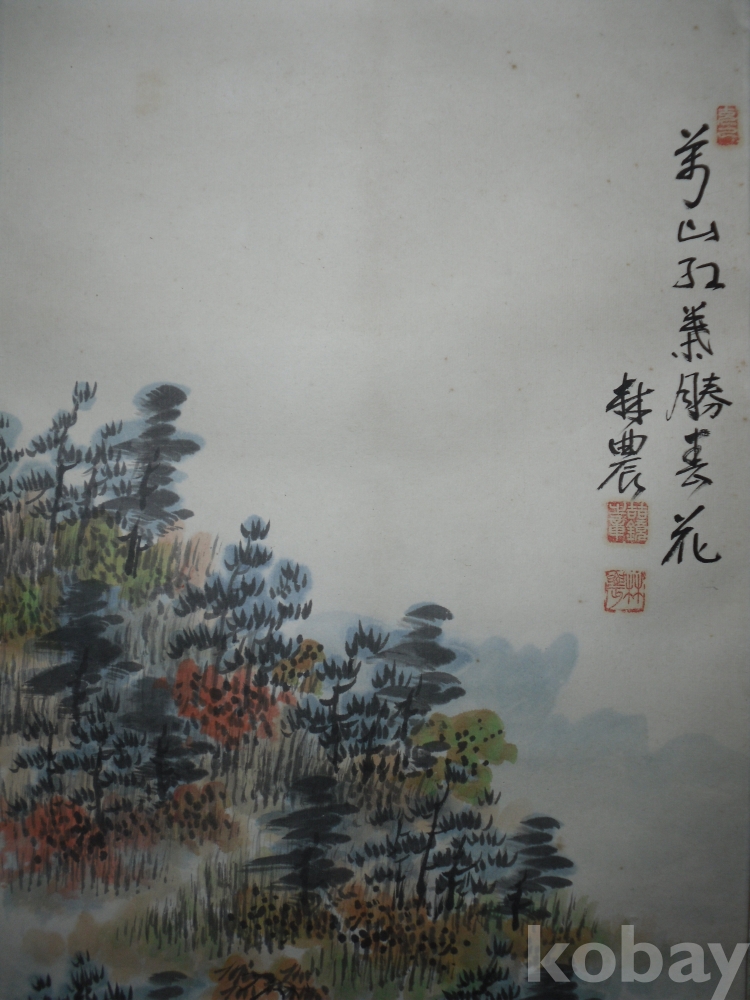 萬山紅葉勝春花
林農
kobay